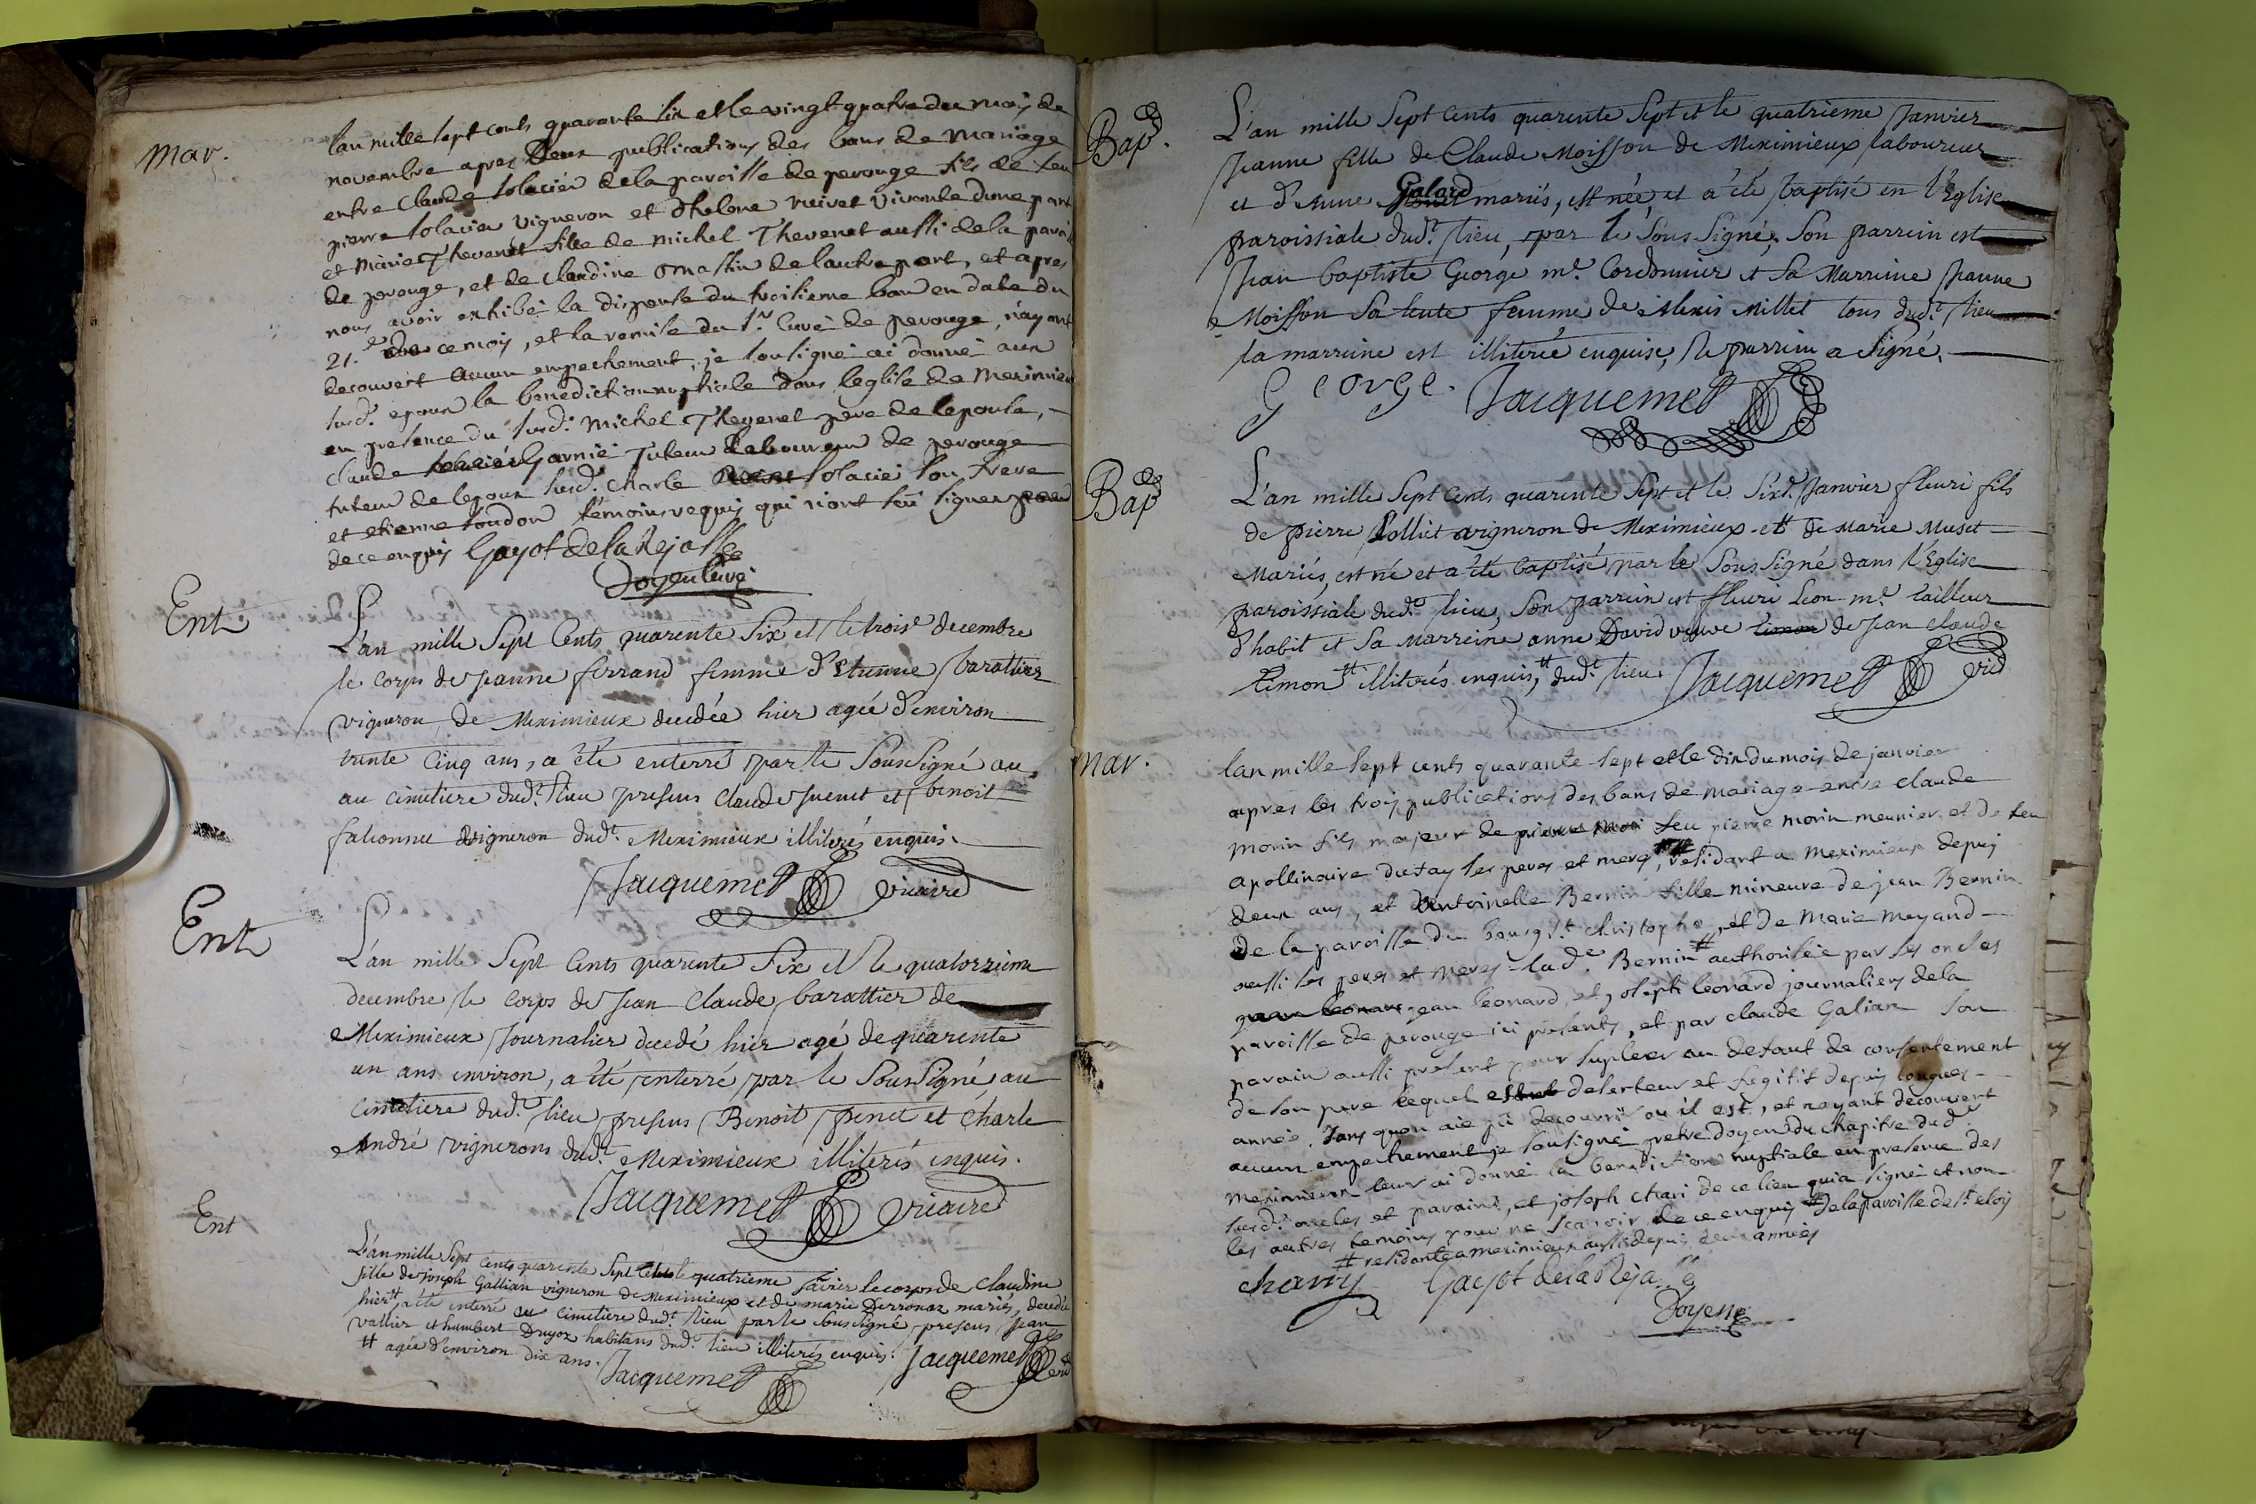 mar.
lan mille sept cents quarante six et le vingt quatre du mois de
novembre apres deux publications des bans de mariage
entre claude solacier de la paroisse de perouge fils de feu
pierre solacier vigneron et d'helene vivante d'une part
et marie Thevenet fille de michel Thevenet aussi de la paroi
de perouge, et de claudine de lautre part, et apres
nous avoir exhibé la dispense du troisieme ban en date du
21.e de ce mois, et la remise du Sr. Curé de perouge, n'ayant
decouvert aucun empechement, je sousigné ai donné aux
susd. epoux la benediction nuptiale dans leglise de meximieux
en presence du susd. michel Thevenet pere de lepouse,
claude Garnié Tuteur laboureur de perouge
tuteur de lepoux susd. charle solacier son frere
et etienne loudon temoins requis qui n'ont sçu signer pour
de ce enquis Gayot de la Rejasse
doyen curé
Ent.
L'an mille Sept Cents quarente Six et le trois.e decembre
le corps de Jeanne ferrand femme d'Etienne barattier
vigneron de Meximieux decedée hier agée d'environ
trente Cinq ans, a été enterré par le Sous Signé au
au cimetiere dud.t lieu presens Claude juenet et benoit
falconnet vigneron dud.t Meximieux illiterés enquis.
Jacquemet vicaire
Ent
L'an mille Sept Cents quarente Six et le quatorzieme
decembre le corps de Jean Claude barattier de
Meximieux Journalier decedé hier agé de quarente
un ans environ, a été enterré par le Sous Signé au
cimetiere dud.t lieu presens Benoit penet et Charle
André vignerons dud.t Meximieux illiterés enquis.
Jacquemet vicaire
Ent
L'an mille Sept Cents quarente Sept et le quatrieme Janvier le corps de Claudine
fille de joseph Gallian vigneron de Meximieux et de marie Derronaz mariés, decedée
hier # a été enterré au cimetiere dud.t lieu par le Sous Signé, presens Jean
vallier et humbert Druyox habitans dud.t lieu illiterés enquis. Jacquemet
# agée d'environ dix ans. Jacquemet
Bap.
L'an mille Sept Cents quarente Sept et le quatrieme Janvier
Jeanne fille de Claude Moisson de Meximieux laboureur
et d'Anne Galard mariés, est née et a été baptisé en l'Eglise
paroissiale dud.t lieu, par le Sous Signé, Son parrein est
Jean baptiste George m.e Cordonnier et Sa Marreine Jeanne
Moisson Sa tente femme de Alexis Millet tous dud.t lieu
la marreine est illiterée enquise, le parrein a Signé.
George. Jacquemet
Bap
L'an mille Sept Cents quarente Sept et le Six.e Janvier fleuri fils
de pierre Pollict vigneron de Meximieux et de Marie Muset
Mariés, est né et a été baptisé par le Sous Signé dans l'Eglise
paroissiale dud.t lieu, Son parrein est fleuri Leon m.e tailleur
d'habit et Sa Marreine anne David veuve de Jean Claude
Timon # illiterés enquis, # dud.t lieu. Jacquemet vic
mar.
lan mille sept cents quarante-sept et le dix du mois de janvier
apres les trois publications des bans de mariage entre claude
morin fils majeur de feu pierre morin meunier et de feu
apollinaire dutay ses peres et meres, residant a meximieux depuis
deux ans, et antoinette Bernin fille mineure de jean Bernin
de la paroisse du bourg st christophe, et de marie meyand
aussi ses peres et meres - lad.e Bernin # authorisée par ses oncles
jean leonard, et joseph leonard journaliers de la
paroisse de perouge ici presents, et par claude Galian son
parain aussi present pour supleer au defaut de consentement
de son pere lequel est deserteur et fugitif depuis longues
années. sans quon aie pu decouvrir ou il est, et nayant decouvert
aucun empechement, je sousigné pretre doyen du chapitre dud.
meximieux leur ai donné la benediction nuptiale en presence des
susd. oncles et parains, et joseph chari de ce lieu qui a signé et non
les autres temoins pour ne scavoir de ce enquis # de la paroisse de st. eloy
# residante a meximieux aussi depuis deux années
charry Gayot de la Rejasse
doyen